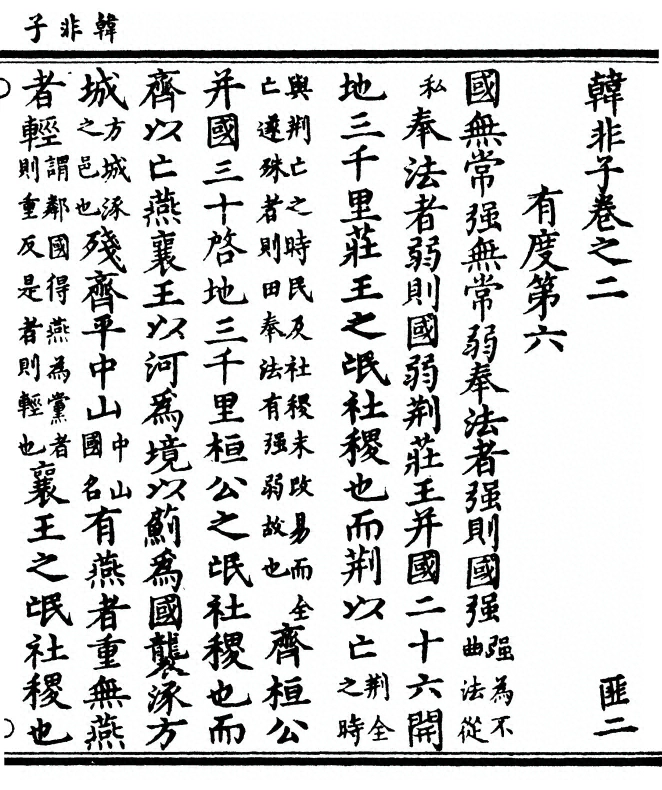 韓非子
韓非子卷之二 匪二
有度第六
國無常强無常弱奉法者强則國强强為不曲法從
私奉法者弱則國弱荆莊王并國二十六開
地三千里莊王之氓社稷也而荆以亡荆全之時
與荆亡之時民及社稷未改易而全亡遂殊者則田奉法有强弱故也齊桓公
并國三十啓地三千里桓公之氓社稷也而
齊以亡燕襄王以河爲境以薊爲國襲涿方
城方城涿之邑也殘齊平中山中山國名有燕者重無燕
者輕謂鄰國得燕為黨者則重反是者則輕也襄王之氓社稷也